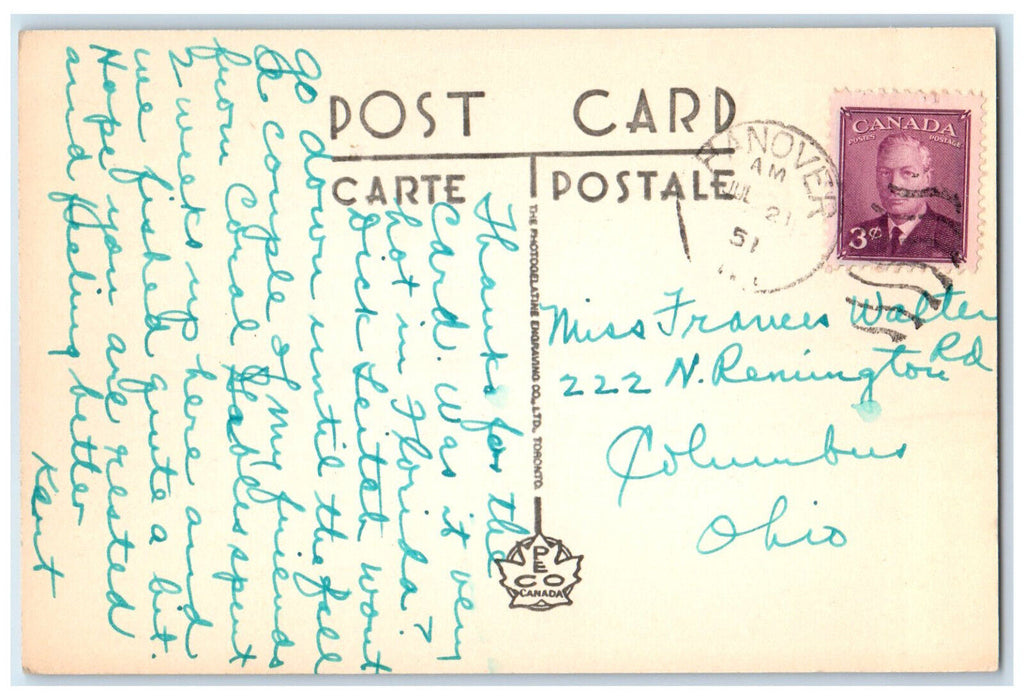 POST CARD
CARTE POSTALE
THE PHOTOGELATINE ENGRAVING CO., LTD., TORONTO
PECO
CANADA
HANOVER
AM
JUL 21
51
CANADA
POSTES POSTAGE
3¢
Miss Frances Walter
222 N. Remington Rd
Columbus
Ohio
Thanks for the
Card. Was it very
hot in Florida?
Dick Leitch wont
go down until the fall
A couple of my friends
from Coral Gables spent
2 weeks up here and
we fished quite a bit.
Hope you are rested
and feeling better
Kent